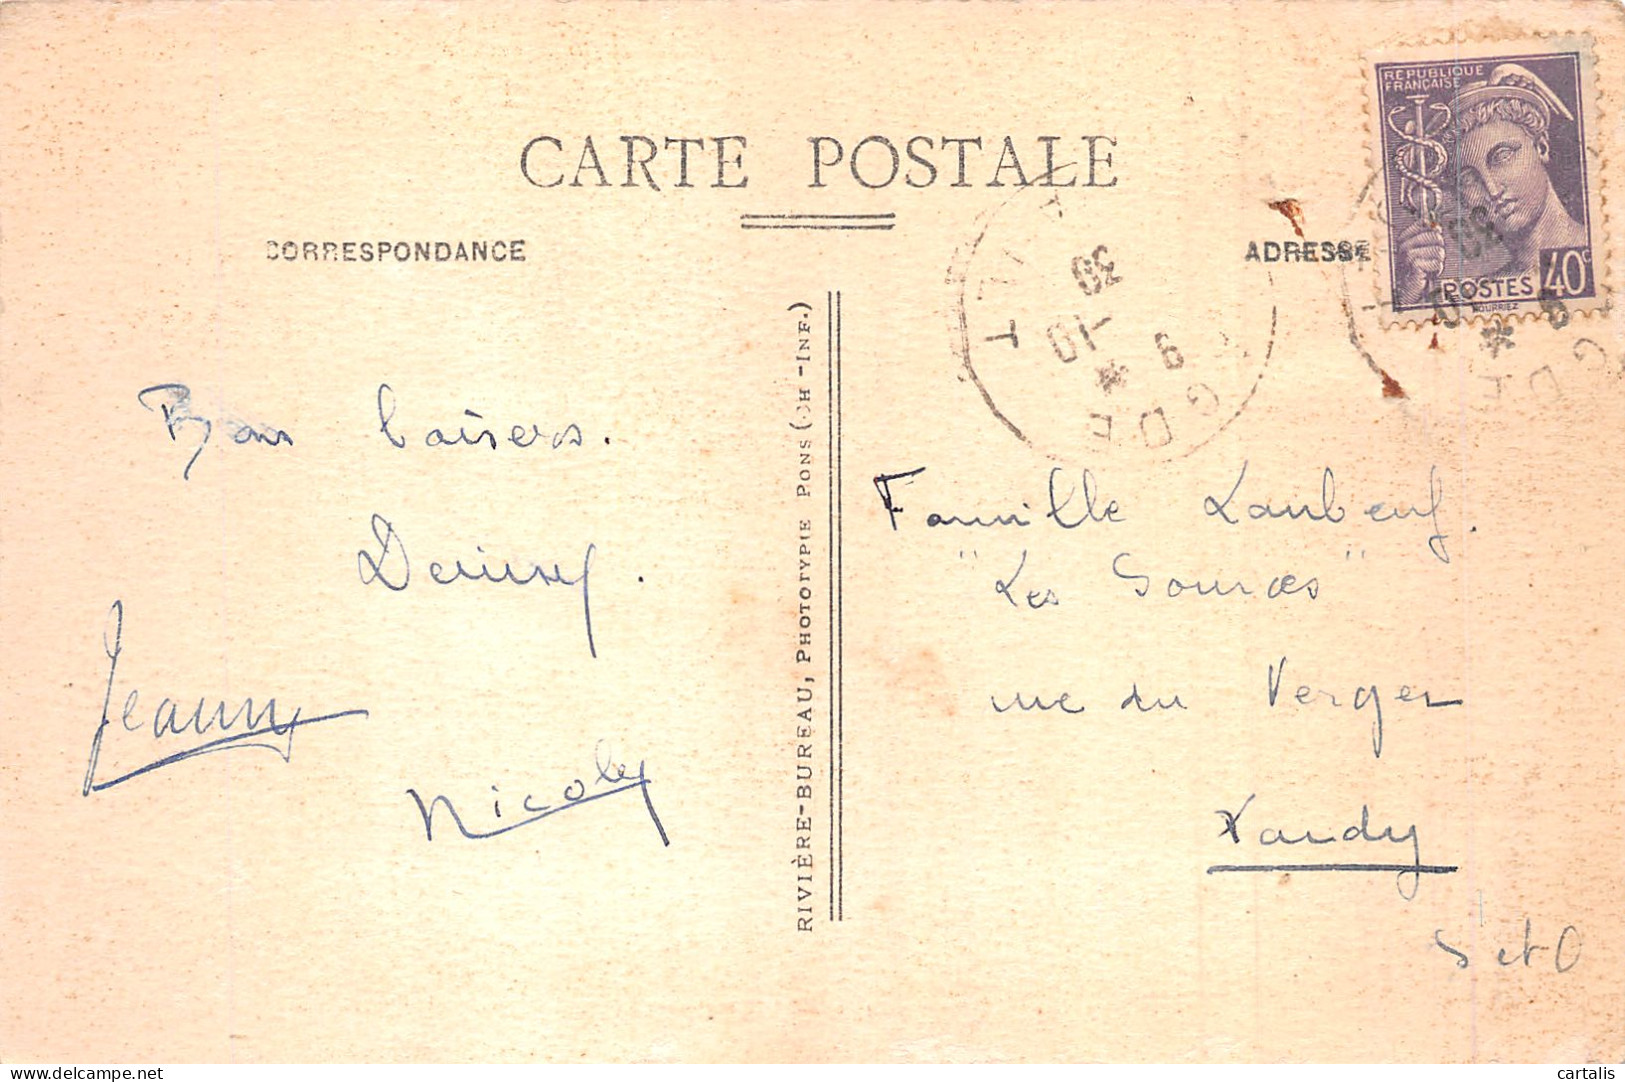 CARTE POSTALE
CORRESPONDANCE
ADRESSE
RÉPUBLIQUE
FRANÇAISE
POSTES 40c
Bons baisers.
Jeanny
Nicoley
RIVIÈRE-BUREAU, PHOTOTYPIE PONS (CH -INF.)
9 -10
39
GDE
Famille Laubeuf.
"Les Sources"
rue du Verger
S et O
cartalis
Delcampe.net